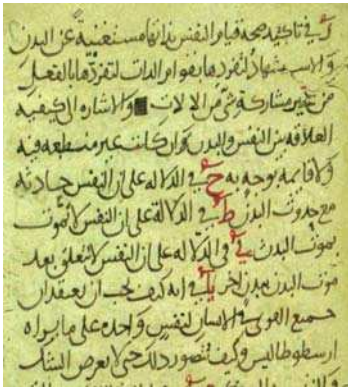 في تاكيد صحة قيام النفس بذاتها مستغنية عن البدن
والاستشهاد لتفردها بقوام الذات لتفردها بالفعل
من غير مشاركة شي من الالات والاشاره الى كيفيه
العلاقه بين النفس والبدن وان كانت غير منطبعه فيه
ولا قايمه بوجه به ح في الدلاله على ان النفس حادثه
مع حدوث البدن ط في الدلالة على ان النفس لا تموت
بموت البدن ي في الدلاله على ان النفس لا تتعلق بعد
موت البدن ببدن اخر يا في انه كيف يجب ان يعتقد ان
جميع القوى في الانسان لنفس واحده على ما يراه
ارسطوطاليس وكيف نتصور ذلك حتى لا يعرض الشك